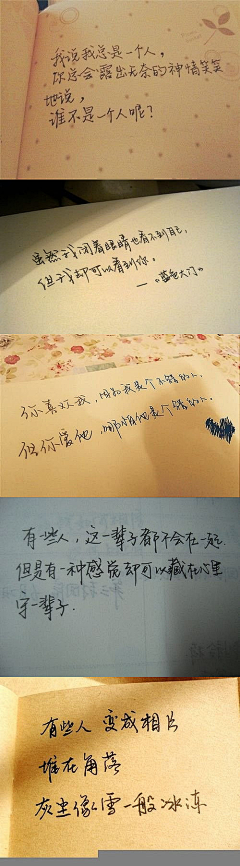 我说我总是一个人，
你总会露出无奈的神情笑笑
地说，
谁不是一个人呢？
虽然我闭着眼睛也看不到自己，
但我却可以看到你。
—《蓝色大门》
你喜欢我，因为我是个不错的人.
但你爱他，哪怕他是个错的人.
有些人，这一辈子都不会在一起.
但是有一种感觉却可以藏在心里
守一辈子.
有些人 变成相片
堆在角落
灰尘像雪一般冰冻